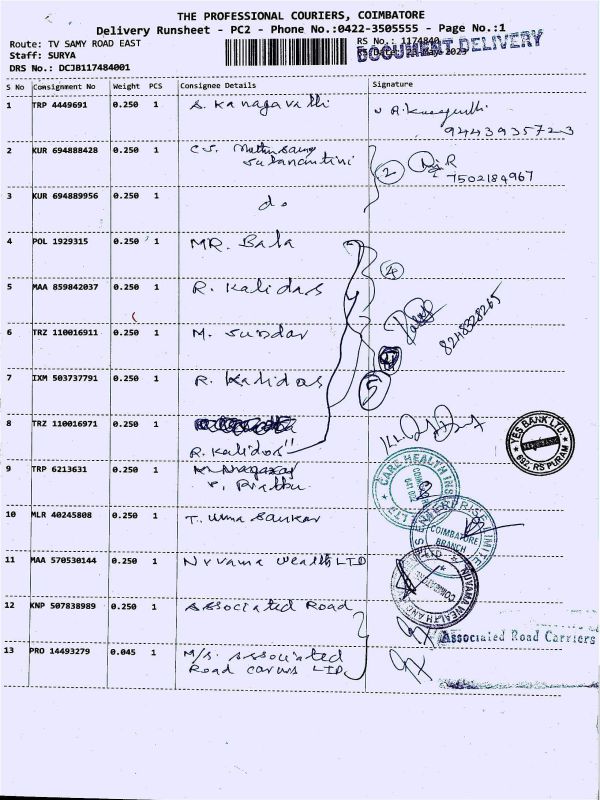 THE PROFESSIONAL COURIERS, COIMBATORE
Delivery Runsheet - PC2 - Phone No.:0422-3505555 - Page No.:1
Route: TV SAMY ROAD EAST
RS No.: 1174840
Staff: SURYA
DOCUMENT DELIVERY
DRS No.: DCJB117484001
S No Consignment No Weight PCS Consignee Details Signature
1 TRP 4449691 0.250 1 S. Kanagavathi
9443935723
2 KUR 694888428 0.250 1 C.S. Muthusamy
Sulanantini
2
7502184967
3 KUR 694889956 0.250 1 do
4 POL 1929315 0.250 1 MR. Bala
4
5 MAA 859842037 0.250 1 R. Kalidass
8248328265
6 TRZ 110016911 0.250 1 M. Sundar
7 IXM 503737791 0.250 1 R. Kalidas
5
8 TRZ 110016971 0.250 1
R. Kalidos "
YES BANK LTD
692, RS PURAM
9 TRP 6213631 0.250 1
Prabhu
CARE HEALTH INS
10 MLR 40245808 0.250 1 T. Uma Sankar
COIMBATORE
BRANCH
11 MAA 570530144 0.250 1 Nuvama Wealth LTD
NUVAMA WEALTH AND
12 KNP 507838989 0.250 1 Associated Road
Associated Road Carriers
13 PRO 14493279 0.045 1 M/s. Associated
Road LTD